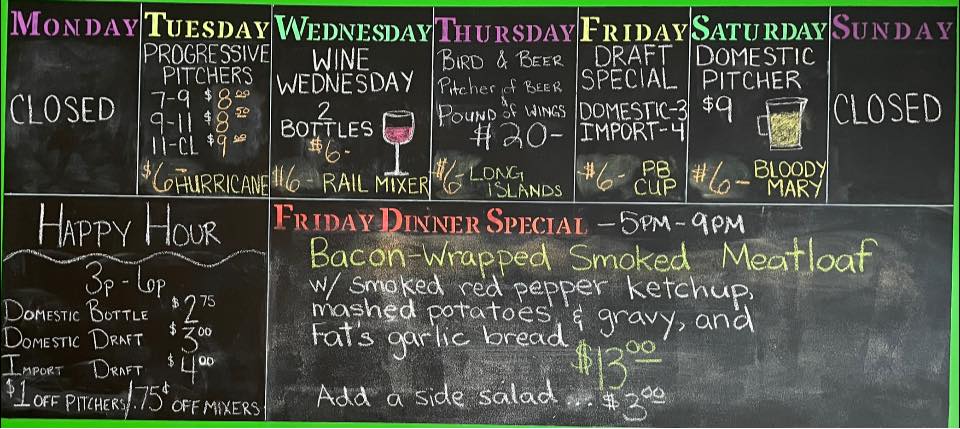 MONDAY
CLOSED
TUESDAY
PROGRESSIVE
PITCHERS
7-9 $8.00
9-11 $8.50
11-CL $9.00
$6- HURRICANE
WEDNESDAY
WINE
WEDNESDAY
2
BOTTLES
$6-
$6- RAIL MIXER
THURSDAY
BIRD & BEER
Pitcher of BEER
&
POUND OF WINGS
$20-
$6- LONG
ISLANDS
FRIDAY
DRAFT
SPECIAL
DOMESTIC-3
IMPORT-4
$6- PB
CUP
SATURDAY
DOMESTIC
PITCHER
$9
$6- BLOODY
MARY
SUNDAY
CLOSED
HAPPY HOUR
3p-6p
DOMESTIC BOTTLE $2.75
DOMESTIC DRAFT $3.00
IMPORT DRAFT $4.00
$1 OFF PITCHERS/.75¢ OFF MIXERS
FRIDAY DINNER SPECIAL - 5PM-9PM
Bacon-Wrapped Smoked Meatloaf
w/ smoked red pepper ketchup,
mashed potatoes & gravy, and
Fat's garlic bread
$13.00
Add a side salad... $3.00